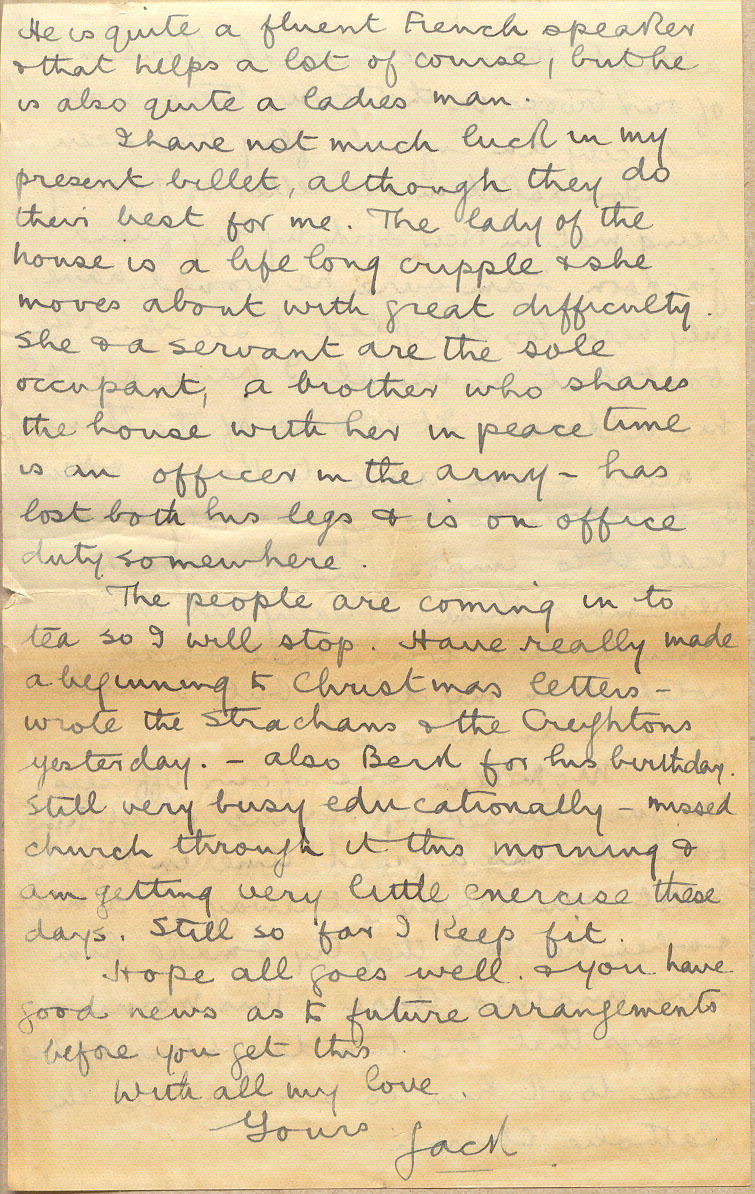 He is quite a fluent French speaker
& that helps a lot of course, but he
is also quite a ladies man.
I have not much luck in my
present billet, although they do
their best for me. The lady of the
house is a life long cripple & she
moves about with great difficulty.
She & a servant are the sole
occupant, a brother who shares
the house with her in peace time
is an officer in the army – has
lost both his legs & is on office
duty somewhere.
The people are coming in to
tea so I will stop. Have really made
a beginning to Christmas letters –
wrote the Strachans & the Creightons
yesterday. – also for his birthday.
Still very busy educationally – missed
church through it this morning &
am getting very little exercise these
days. Still so far I keep fit.
Hope all goes well. & you have
good news as to future arrangements
before you get this.
With all my love.
Yours
Jack